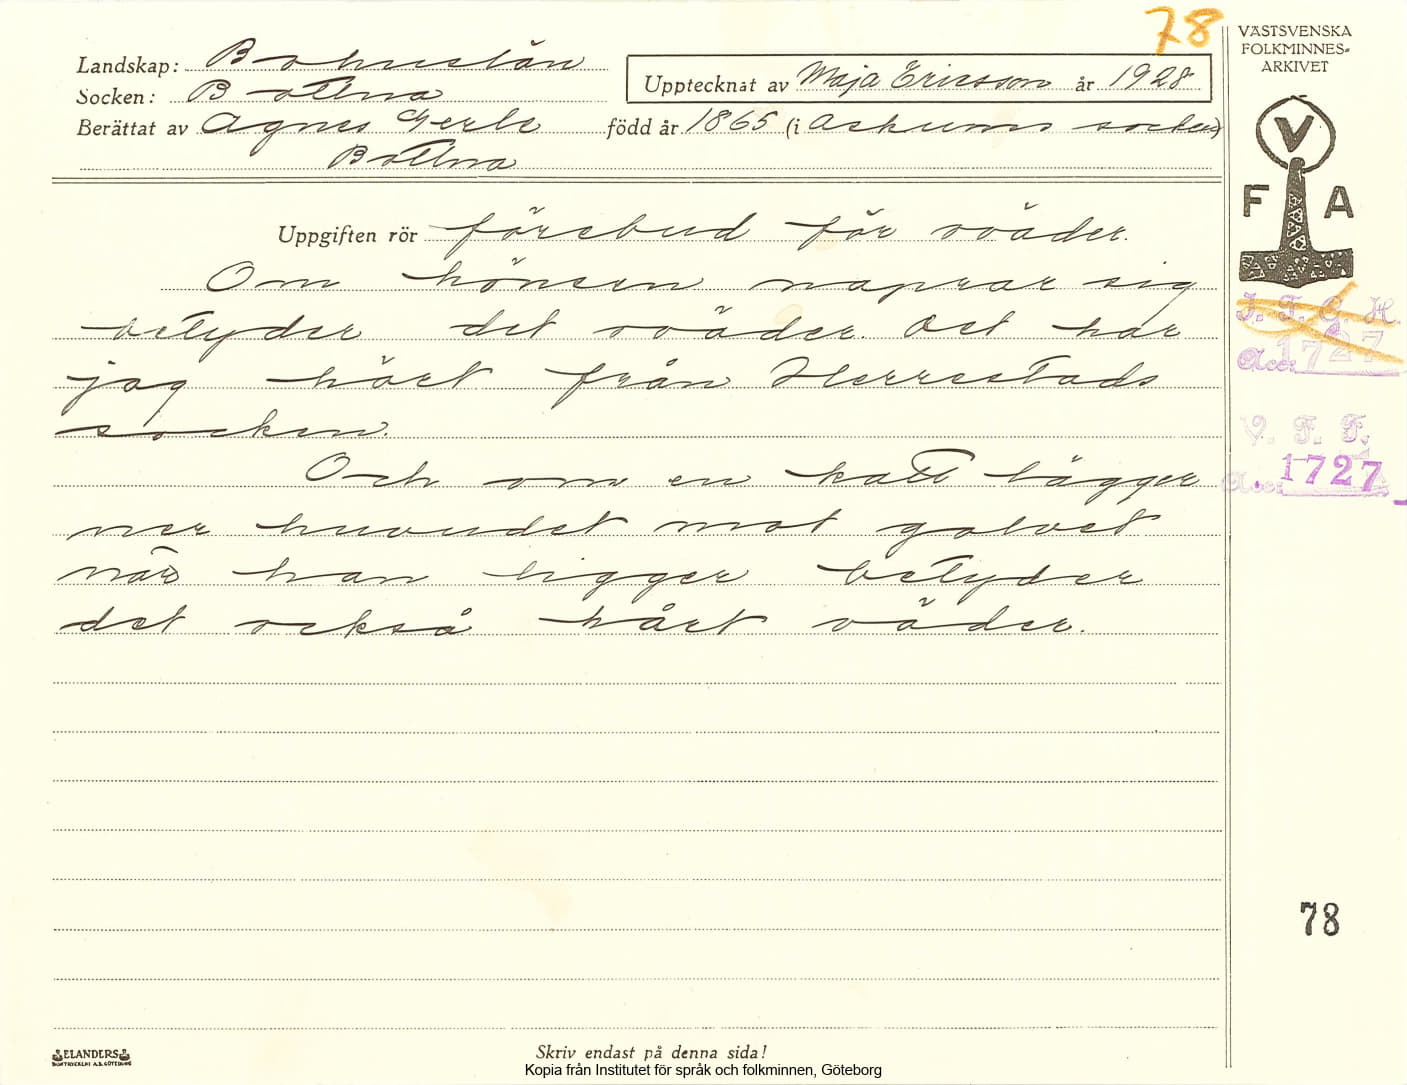 78
VÄSTSVENSKA
FOLKMINNES-
ARKIVET
Landskap: Bohuslän
Upptecknat av Maja Ericsson år 1928
Socken: Bottna
Berättat av Agnes Gerle född år 1865 (i Askums socken)
Bottna
V
F A
Uppgiften rör förebud för oväder.
Om hönsen naprar sig
betyder det oväder. Det har
jag hört från Herrestads
socken.
Och om en katt lägger
ner huvudet mot golvet
när han ligger betyder
det också hårt väder.
I. F. G. H.
Acc: 1727
V. F. F.
Acc: 1727
78
ELANDERS
BOKTRYCKERI A.B. GÖTEBORG
Skriv endast på denna sida!
Kopia från Institutet för språk och folkminnen, Göteborg